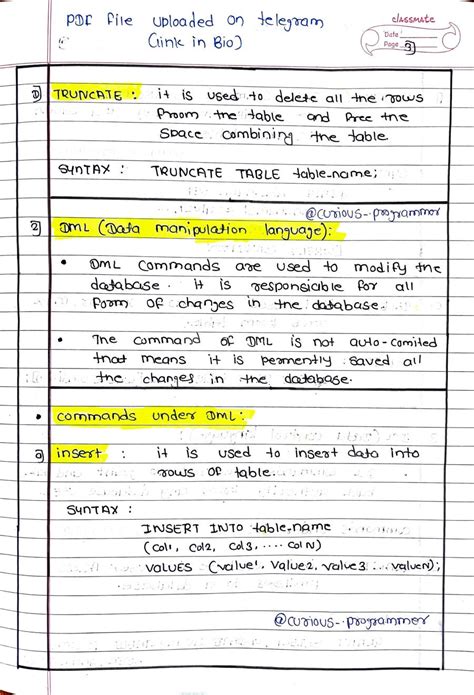 PDF file uploaded on telegram
(link in Bio)
classmate
Date
Page 3
D) TRUNCATE : it is used to delete all the rows
from the table and free the
space combining the table
SYNTAX : TRUNCATE TABLE table-name;
@curious-programmer
2) DML (Data manipulation language):
• DML commands are used to modify the
database. it is responsiable for all
form of changes in the database.
• The command of DML is not auto-comited
that means it is permently saved all
the changes in the database.
• commands under DML:
a) insert : it is used to insert data into
rows of table.
SYNTAX :
INSERT INTO table-name
(col1, col2, col3, .... col N)
VALUES (value1, value2, value3 ... valueN);
@curious-programmer